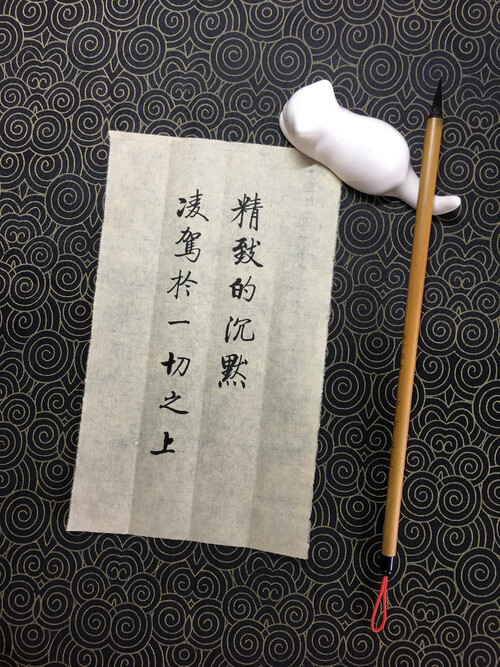 精致的沉默
凌駕於一切之上